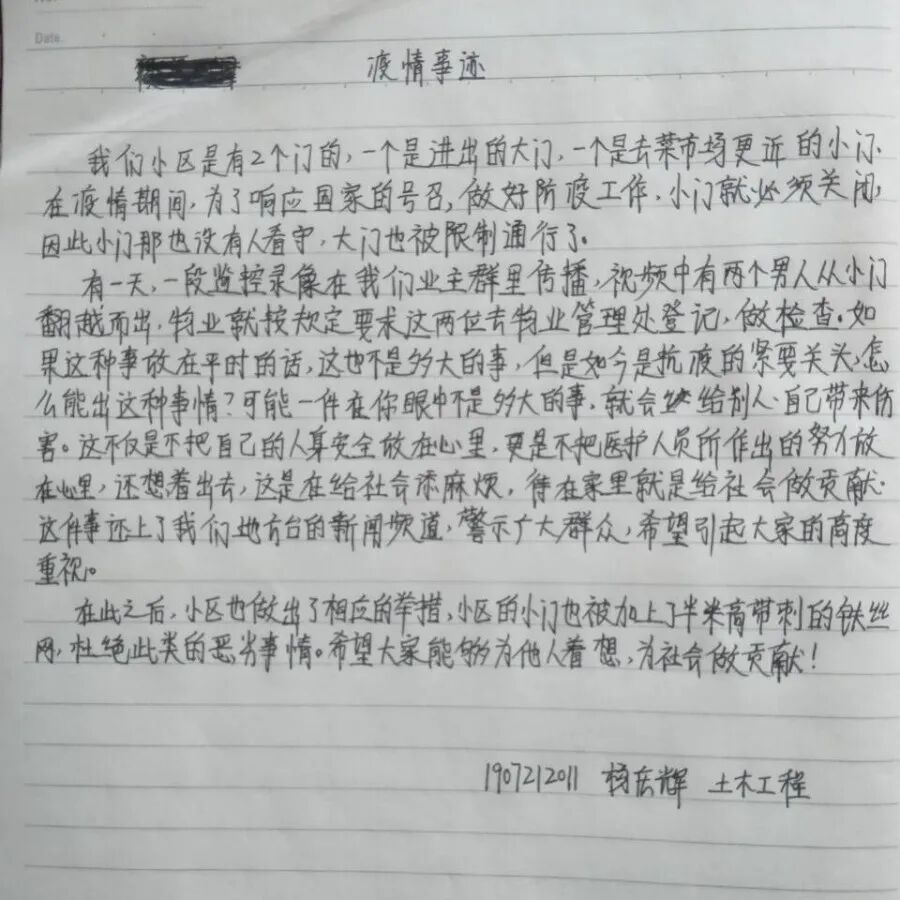 Date.
疫情事迹
我们小区是有2个门的，一个是进出的大门，一个是去菜市场更近的小门.
在疫情期间，为了响应国家的号召，做好防疫工作，小门就必须关闭，
因此小门那也没有人看守，大门也被限制通行了。
有一天，一段监控录像在我们业主群里传播，视频中有两个男人从小门
翻越而出，物业就按规定要求这两位去物业管理处登记，做检查。如
果这种事放在平时的话，这也不是多大的事，但是如今是抗疫的紧要关头，怎
么能出这种事情？可能一件在你眼中不是多大的事，就会给别人、自己带来伤
害。这不仅是不把自己的人身安全放在心里，更是不把医护人员所作出的努力放
在心里，还想着出去，这是在给社会添麻烦，待在家里就是给社会做贡献.
这件事还上了我们地方台的新闻频道，警示广大群众，希望引起大家的高度
重视。
在此之后，小区也做出了相应的举措，小区的小门也被加上了半米高带刺的铁丝
网，杜绝此类的恶劣事情。希望大家能够为他人着想，为社会做贡献！
1907212011 杨东辉 土木工程